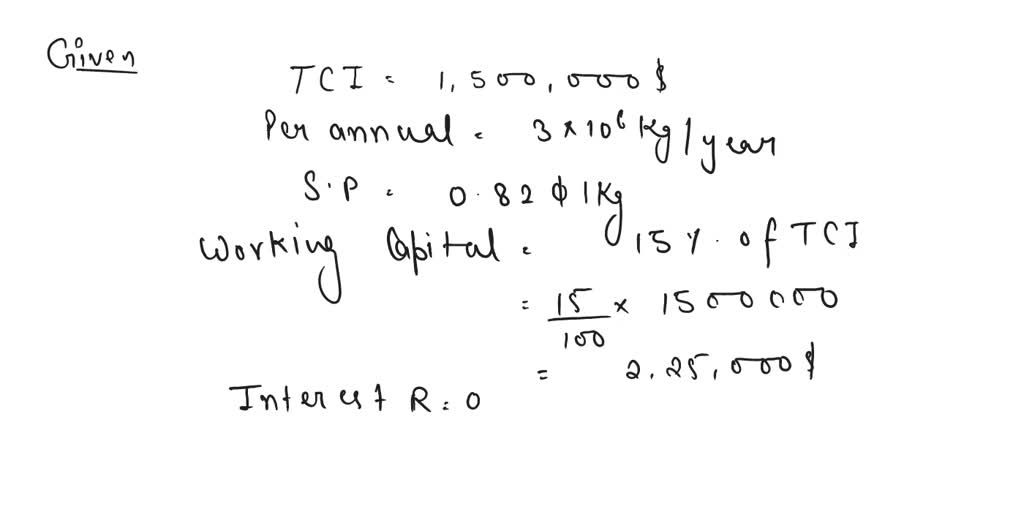 Given
TCI = 1,500,000$
Per annual = 3 × 10⁶ Kg/year
S.P = 0.82 $/Kg
Working Capital = 15% of TCI
= 15/100 × 1500000
= 2.25,000$
Interest R = 0